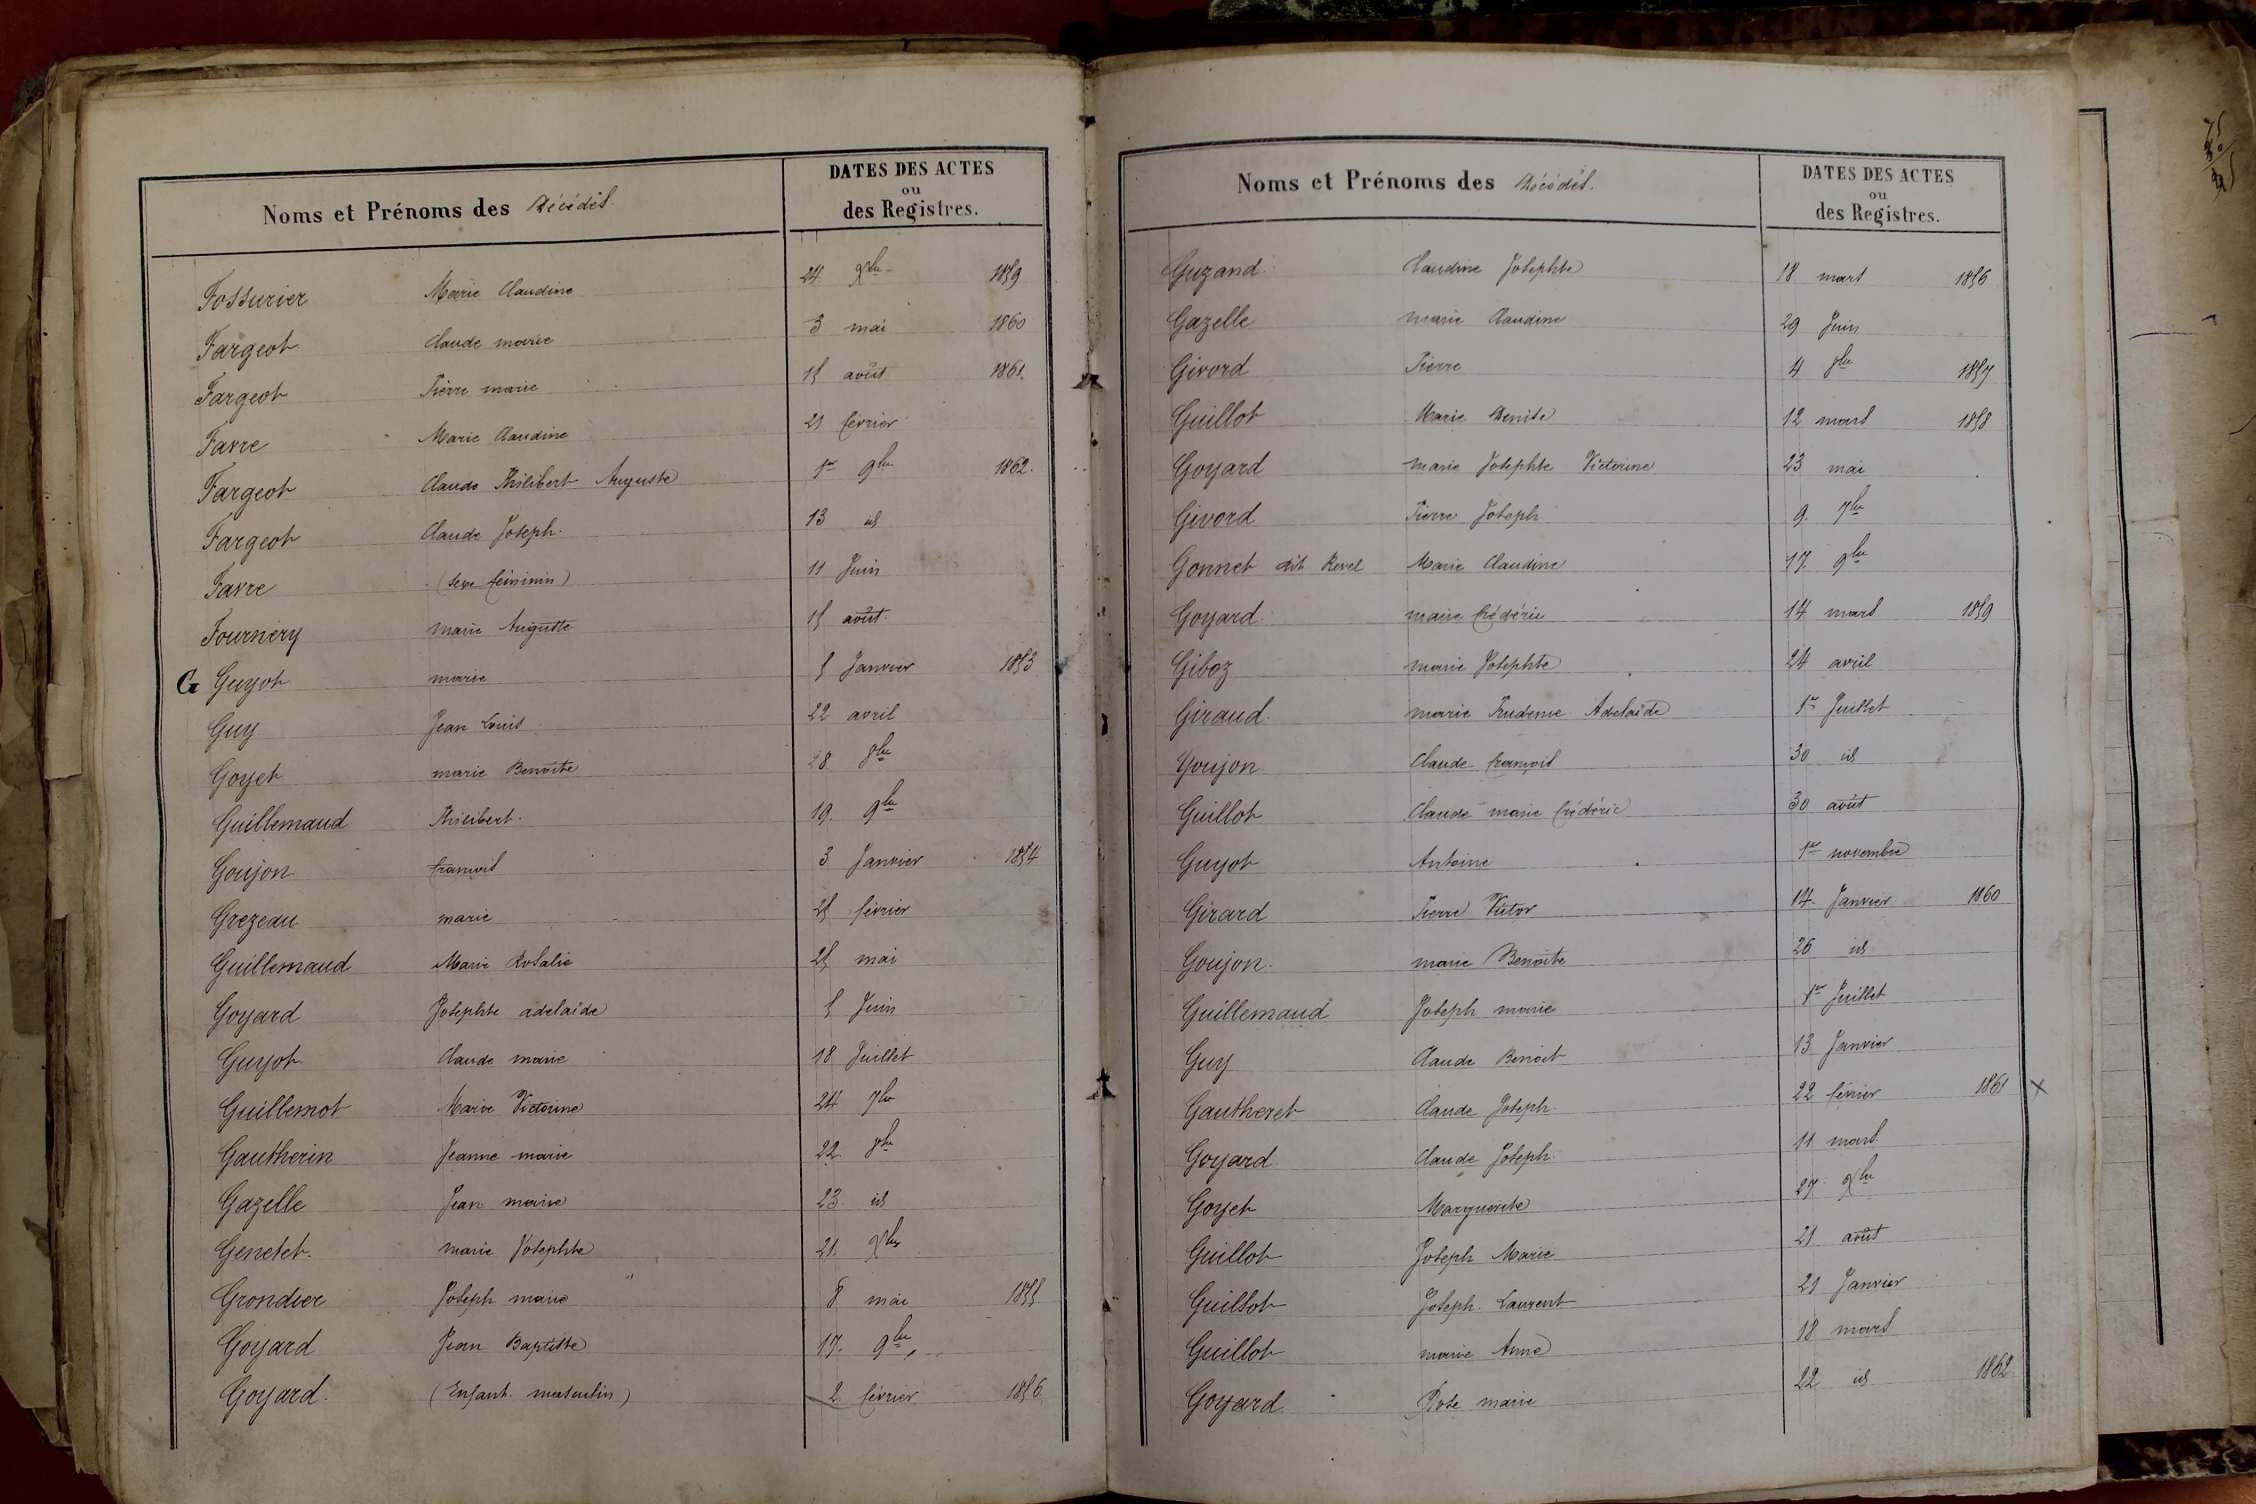 Noms et Prénoms des Décédés.
DATES DES ACTES
ou
des Registres.
Fossurier Marie Claudine 24 Xbre 1859
Fargeot Claude marie 3 mai 1860
Fargeot Pierre marie 15 août 1861.
Favre Marie Claudine 21 février
Fargeot Claude Philibert Auguste 1er 9bre 1862.
Fargeot Claude Joseph. 13 id
Favre (sexe féminin) 11 Juin
Fournery marie Auguste 15 août.
G Guyot marie 5 Janvier 1853
Guy Jean Louis 22 avril
Goyet marie Benoite 28 8bre
Guillemaud Philibert. 19. 9bre
Goujon françois 3 Janvier 1854
Grezeau marie 25 février
Guillemaud Marie Rosalie 25 mai
Goyard Josephte adelaïde 5 Juin
Guyot Claude marie 18 Juillet
Guillemot Marie Victorine 24 7bre
Gautherin Jeanne marie 22 8bre
Gazelle Jean marie 23 id
Genetet. marie Josephte 21. Xbre
Grondier Joseph marie 8 mai 1855.
Goyard Jean Baptiste 17. 9bre
Goyard. (Enfant masculin) 2 février 1856
Noms et Prénoms des Décédés.
DATES DES ACTES
ou
des Registres.
Guzand Claudine Josephte 18 mars 1856
Gazelle marie Claudine 29 Juin
Givord Pierre 4 8bre 1857
Guillot Marie Denise 12 mars 1858
Goyard marie Josephte Victorine 23 mai
Givord Pierre Joseph 9. 7bre
Gonnet dit Revel Marie Claudine 17. 9bre
Goyard. marie frédéric 14 mars 1859
Giboz marie Josephte 24 avril
Giraud. marie Prudence Adelaïde 1er Juillet
Goujon Claude françois 30 id
Guillot Claude marie frédéric 30 août
Guyot Antoine 1er novembre
Girard Pierre Victor 14. Janvier 1860
Goujon. marie Benoite 26 id
Guillemaud Joseph marie 1er Juillet
Guy Claude Benoit 13 Janvier
Gautheret Claude Joseph. 22 février 1861 X
Goyard Claude Joseph. 11 mars.
Goyet Marguerite 27 Xbre
Guillot Joseph Marie 21 août
Guillot Joseph Laurent 21 Janvier
Guillot marie Anne 18 mars
Goyard. Rose marie 22 id 1862